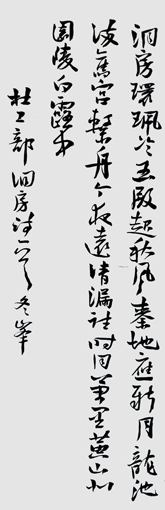 洞房環珮冷玉殿起秋風秦地應新月龍池
滿舊宮繫舟今夜遠清漏往時同萬里黃山北
園陵白露中
杜工部洞房詩一首冬峯